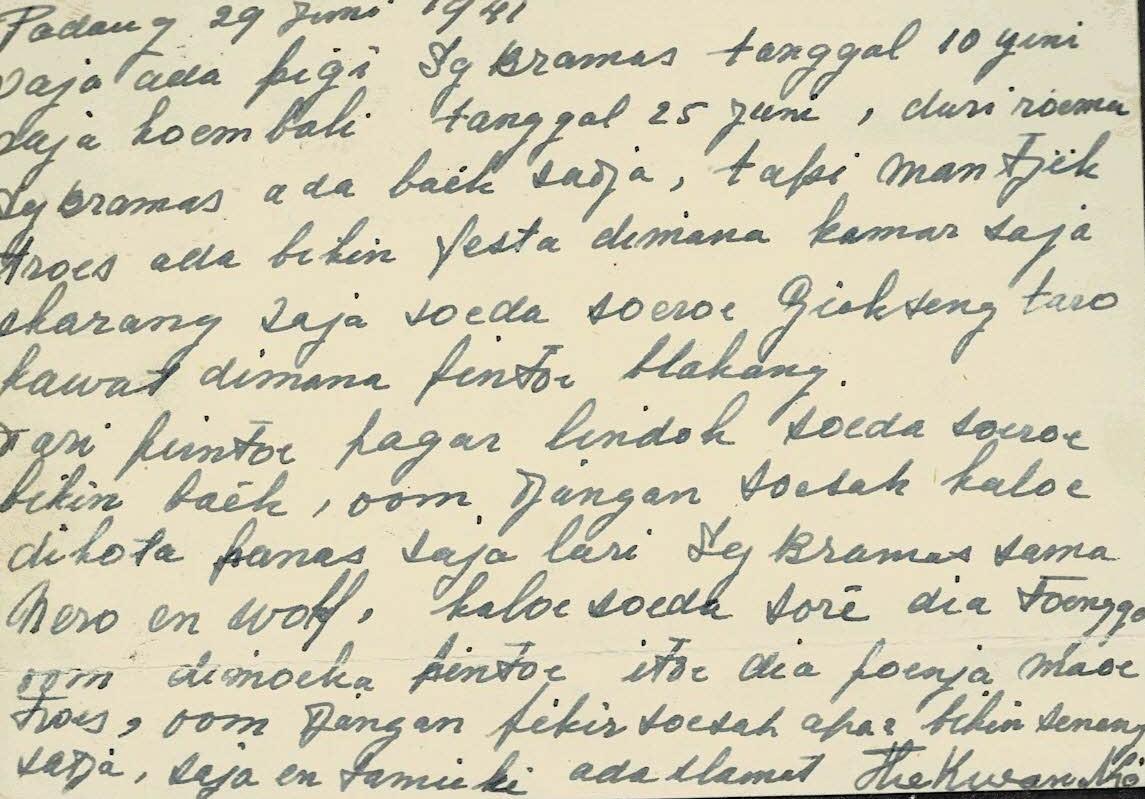 Padang 29 Juni 1941
saja ada pigi Sg Bramas tanggal 10 yuni
saja koembali tanggal 25 Juni, dari roema
Sg Bramas ada baék sadja, tapi man Tjik
troes ada bikin festa dimana kamar saja
skarang saja soeda soeroe Giokseng taro
kawat dimana pintoe blakang.
Dari pintoe pagar lindoh soeda soeroe
bikin baék, oom djangan soesah kaloe
dikota panas saja lari Sg Bramas sama
Nero en Wolf, kaloe soeda sorē dia toengga
oom dimoeka pintoe itoe dia poenja maoe
troes, oom djangan pikir soesah apa2 bikin senang
sadja, saja en ada slamat The Kwan Nio